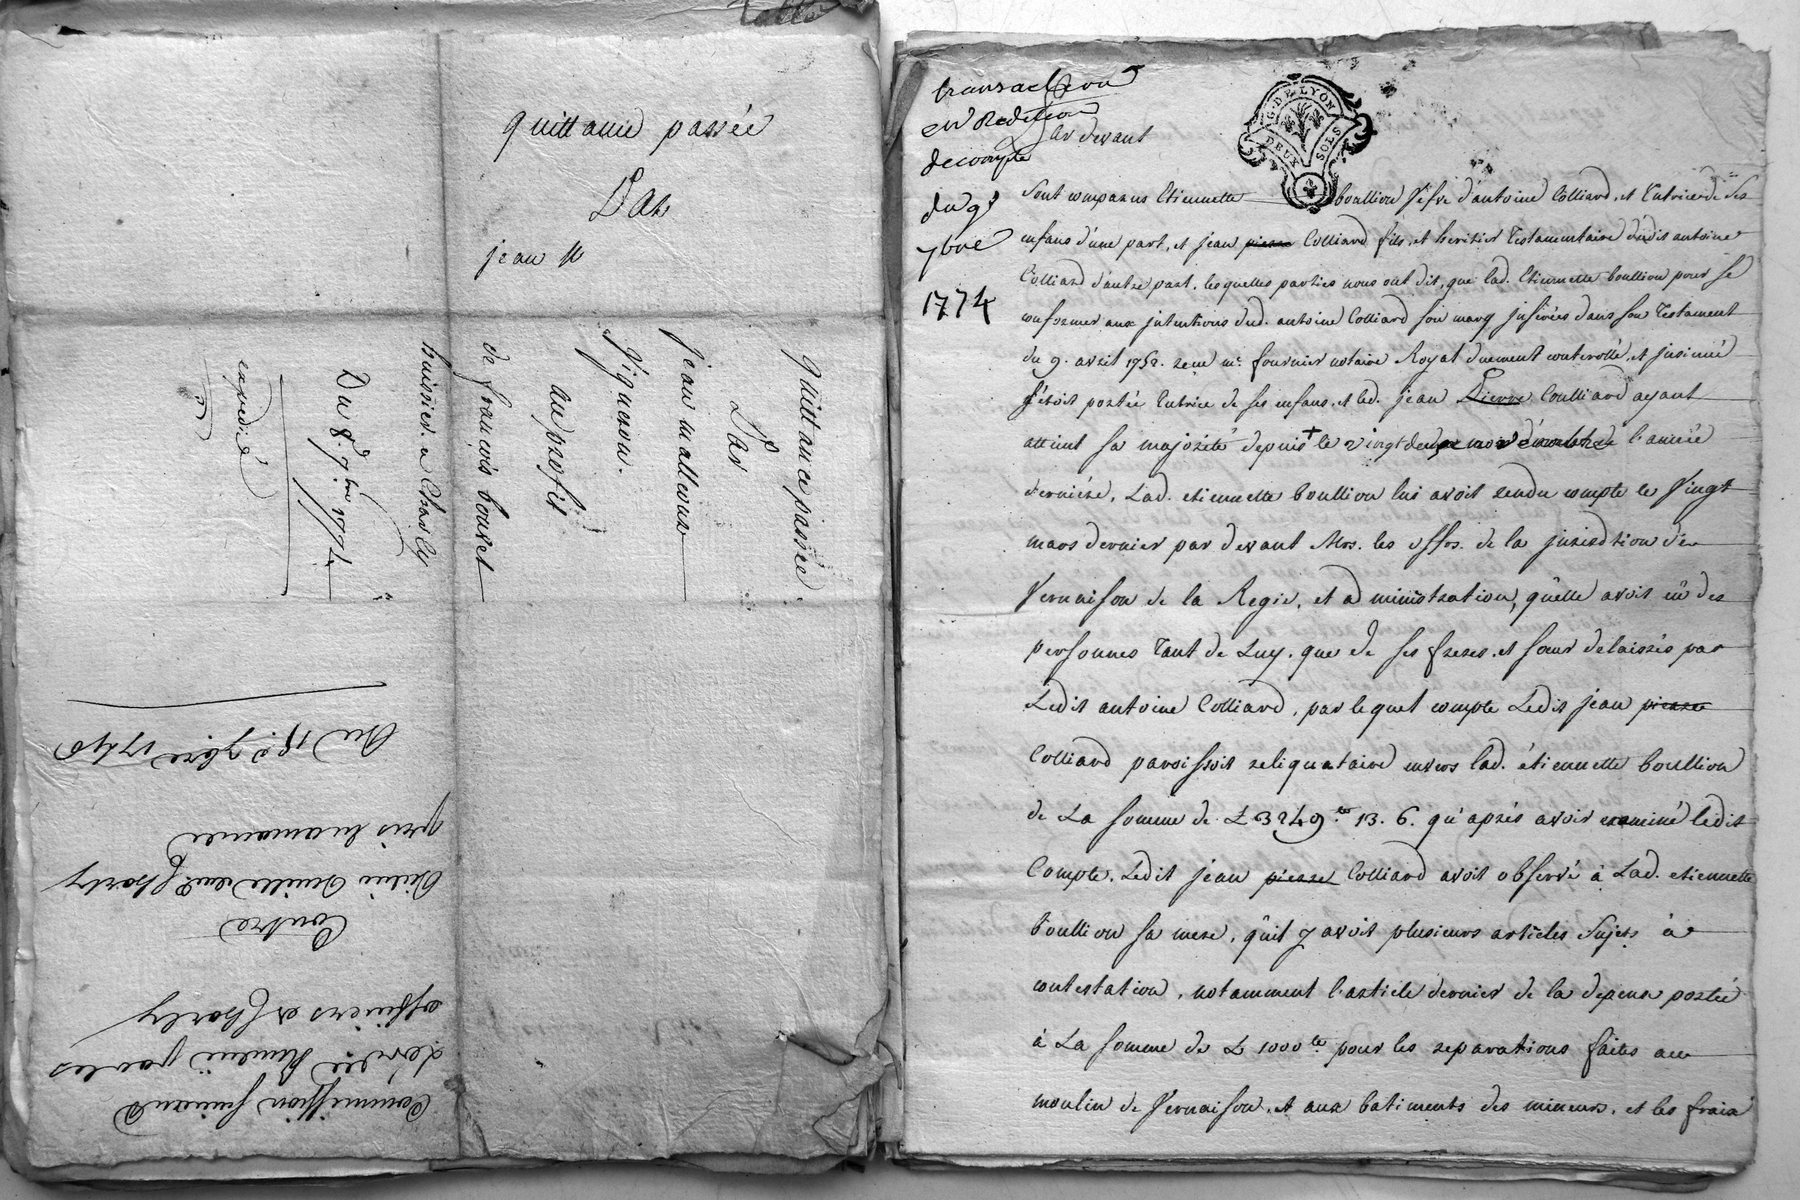 quittance passée
Par
jean m
quittance passée
Par
jean matteveux
vigneron.
au profit
de francois bouvet
huissier a Charly
Du 8.e 7.bre 1774.
expedié
Commission
officiers de Charly
Contre
transaction
en Redition
de compte
du 9.e
7bre
1774
G. DE LYON
DEUX SOLS
Par devant
sont comparus Etiennette Boullion Vefve d'antoine Colliard, et Tutrice de ses
enfans d'une part, et jean pierre Colliard fils, et heritier Testamentaire dudit antoine
Colliard d'autre part, lesquelles parties nous ont dit, que lad. Etiennette boullion pour se
conformer aux intentions dud. antoine Colliard son mary inserées dans son Testament
du 9. avril 1752. reçu me. fournier notaire Royal duement controllé, et insinué
s'étoit portée tutrice de ses enfans, et led. jean Pierre Coulliard ayant
atteint sa majorité depuis + le vingt deux l'année
derniére, Lad. etiennette boullion lui avoit rendu compte le Vingt
mars dernier par devant Mrs. les offrs. de la jurisdtion de
Vernaison de la Regie, et administration, qu'elle avoit eu des
personnes tant de Luy, que de ses freres, et sœur delaissés par
Ledit antoine Colliard, par lequel compte Ledit jean pierre
Colliard paroissoit reliquataire envers lad. étiennette boullion
de La somme de £ 3249.tt 13. 6. qu'aprés avoir examiné ledit
Compte, Ledit jean pierre Colliard avoit observé à Lad. etiennette
boullion sa mere, qu'il y avoit plusieurs articles sujets à
contestation, notamment l'article dernier de la depense portée
à La somme de £ 1000tt pour les reparations faites au
moulin de Vernaison, et aux batiments des mineurs, et les frais